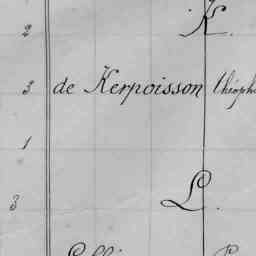 2 K.
3 de Kerpoisson Théoph
1
3 L.